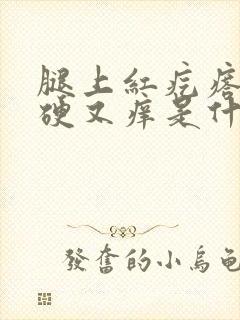 腿上紅疙瘩
硬又痒是什
發奮的小烏龜